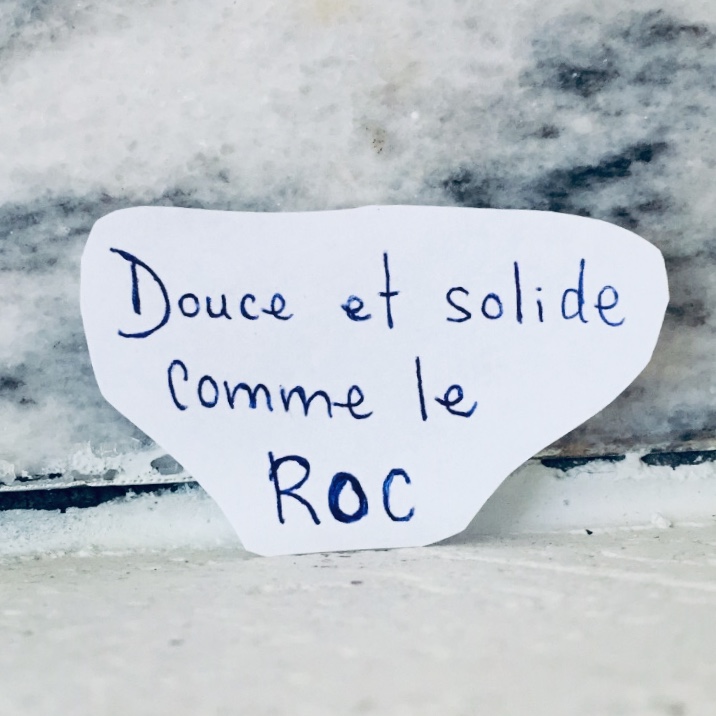 Douce et solide
comme le
ROC